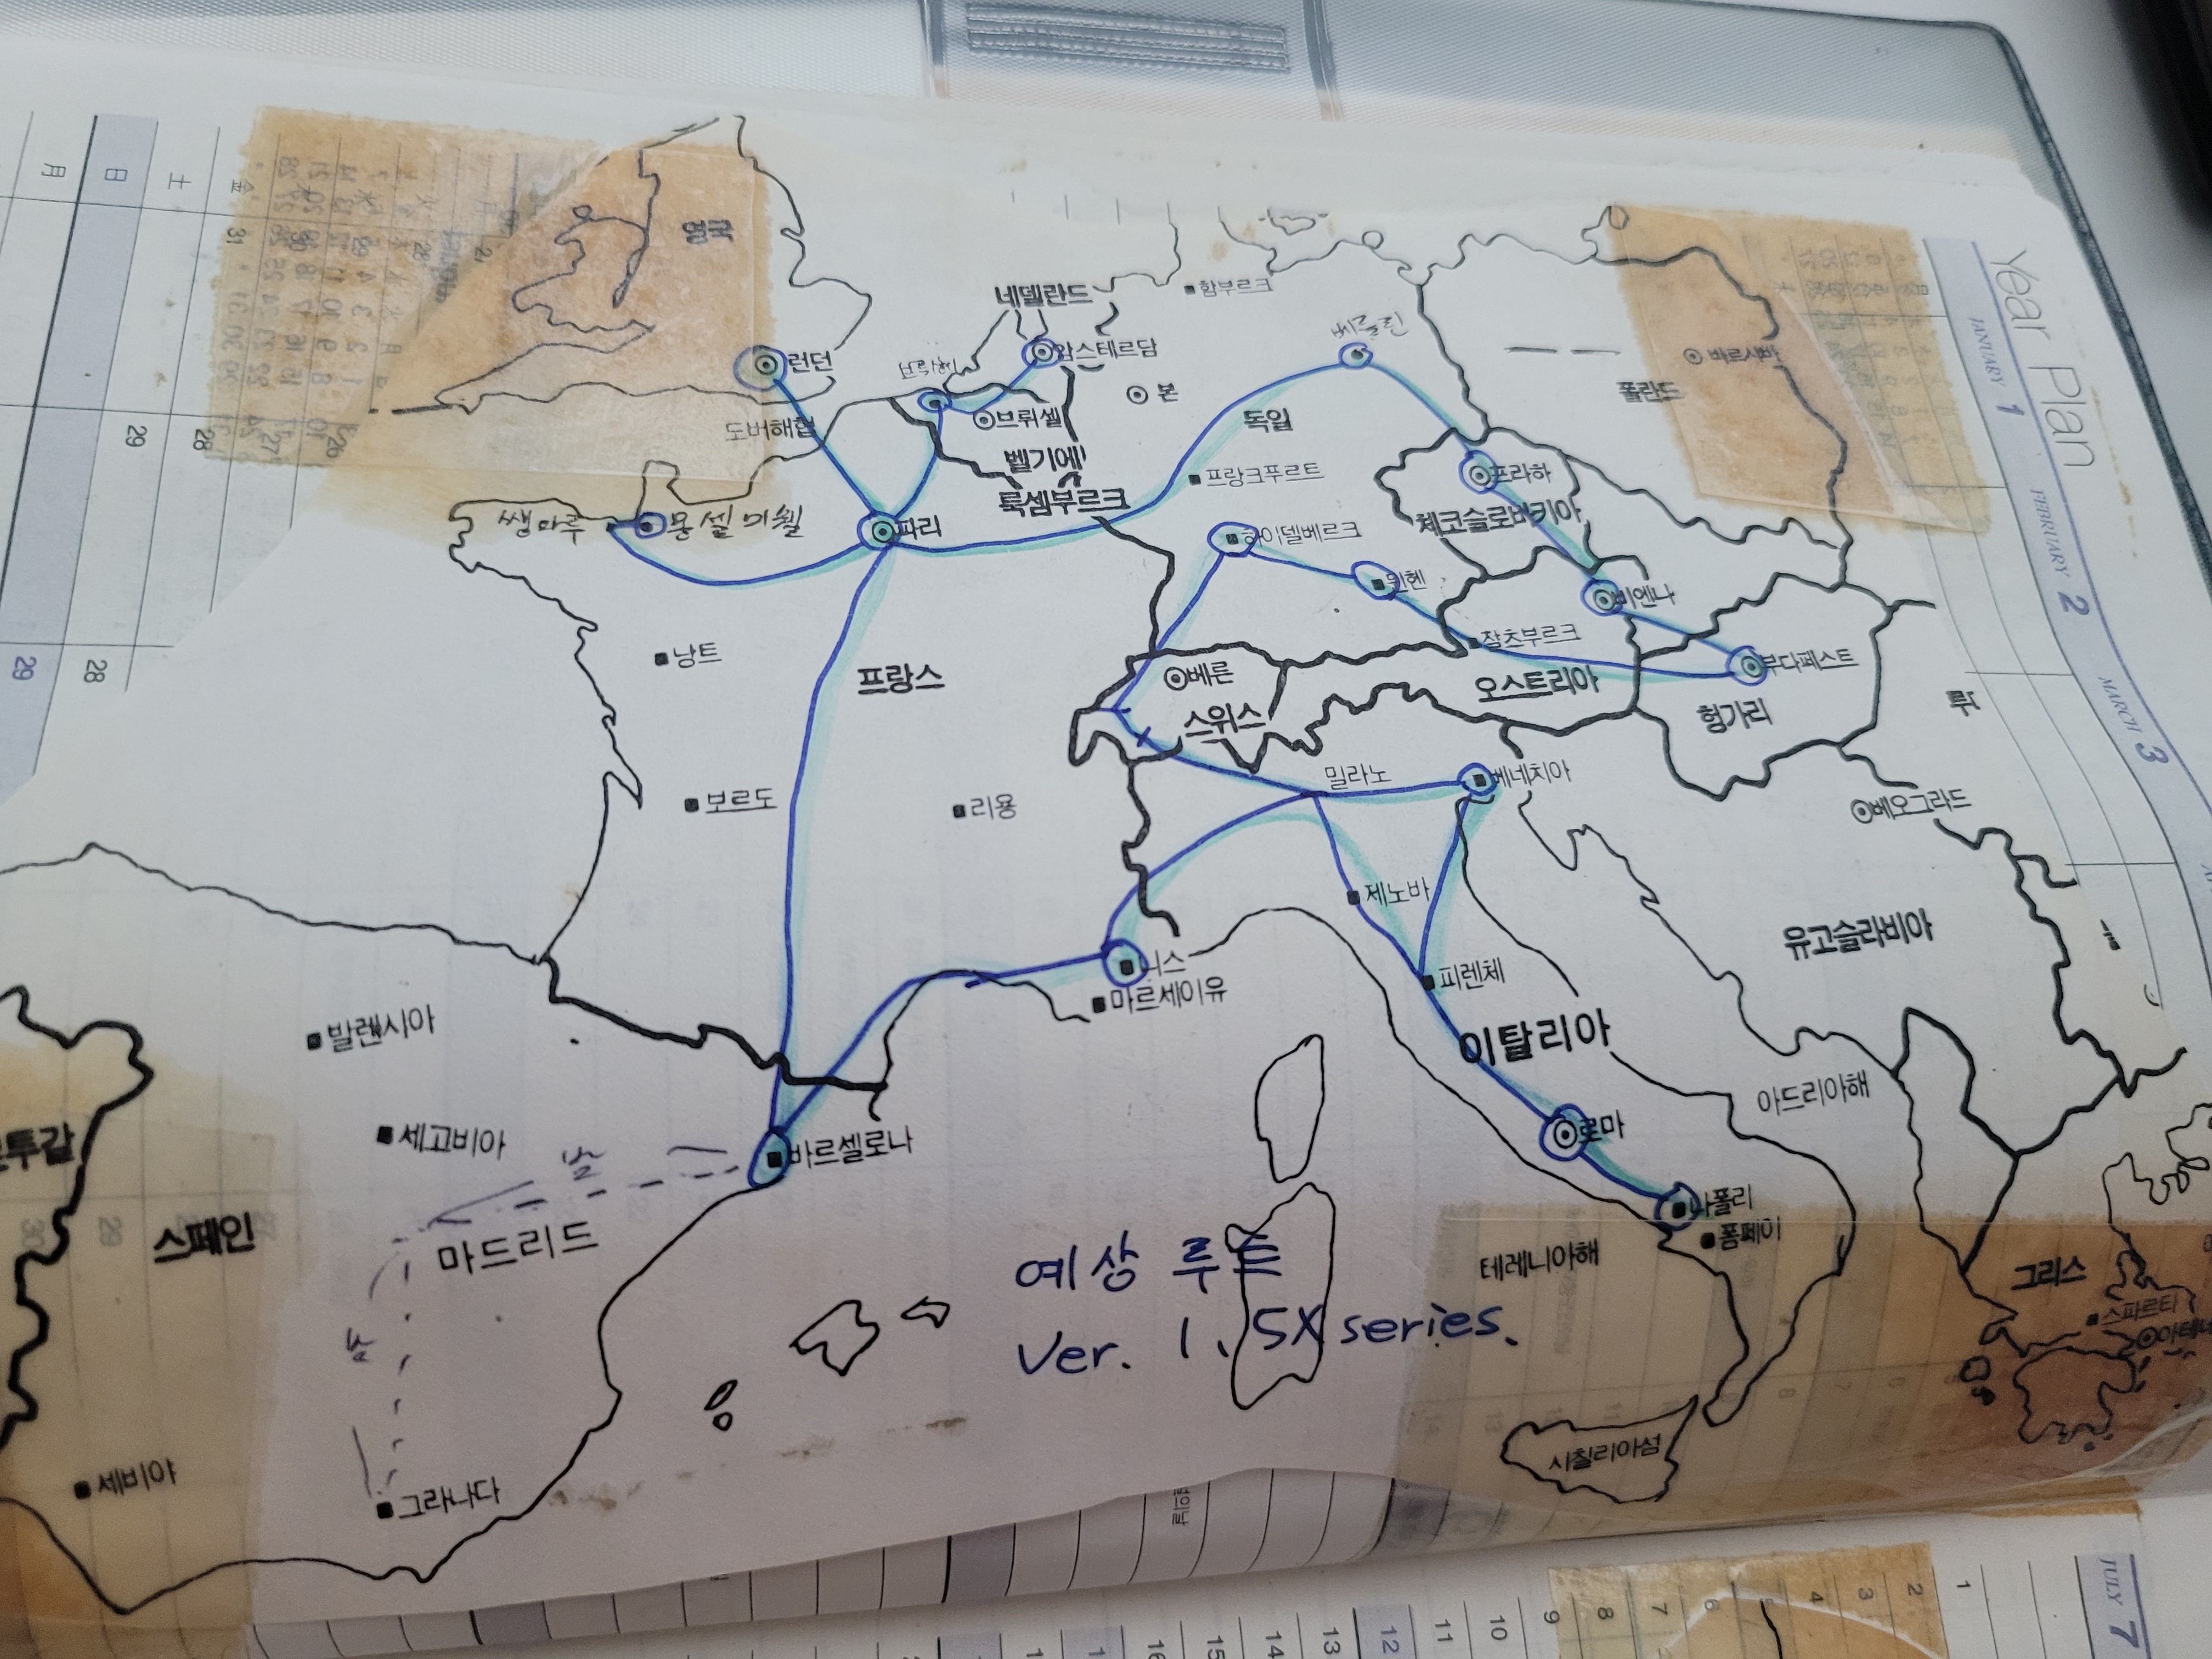 Year Plan
JANUARY 1
FEBRUARY 2
MARCH 3
月
日
土
金
31
29
28
27
26
29
28
영국
런던
도버해협
네델란드
암스테르담
브뤼셀
벨기에
룩셈부르크
본
함부르크
베르린
독일
프랑크푸르트
하이델베르크
뮌헨
폴란드
바르샤바
프라하
체코슬로바키아
비엔나
잘츠부르크
오스트리아
부다페스트
헝가리
루
쌩마루
몽셀미웰
파리
낭트
프랑스
보르도
리용
베른
스위스
밀라노
베네치아
베오그라드
유고슬라비아
제노바
니스
마르세이유
피렌체
이탈리아
아드리아해
로마
나폴리
폼페이
테레니아해
시칠리아섬
그리스
스파르타
발렌시아
세고비아
바르셀로나
밤
투갈
스페인
마드리드
세비아
그라나다
예상 루트
Ver. 1.5X series.
JULY 7
1
2
3
4
6
7
8
9
10
11
12
13
14
15
16